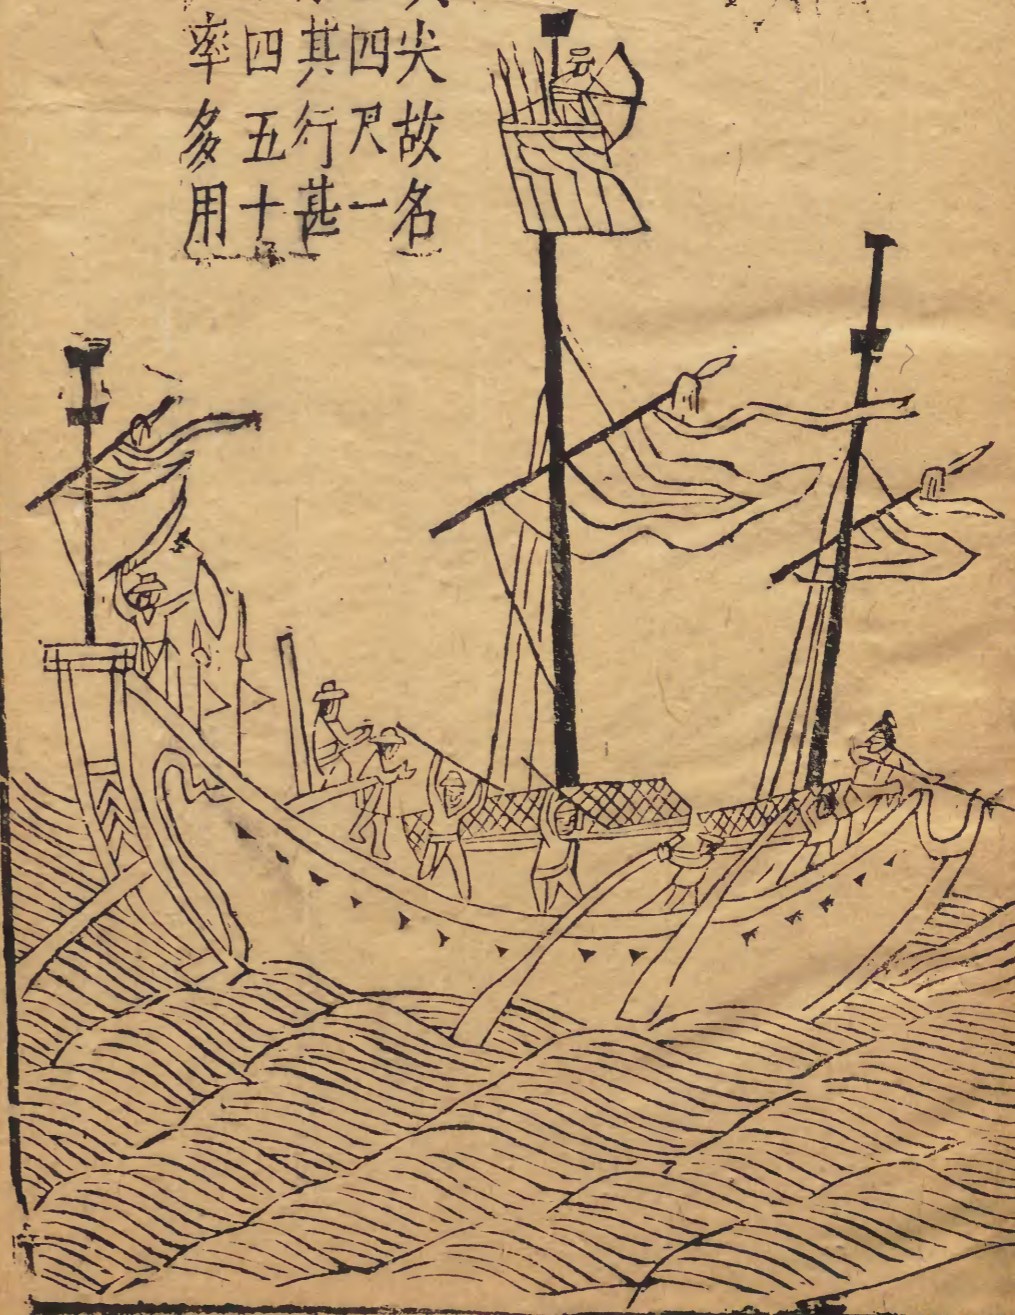 尖故名
四尺一
其行甚
四五十
率多用